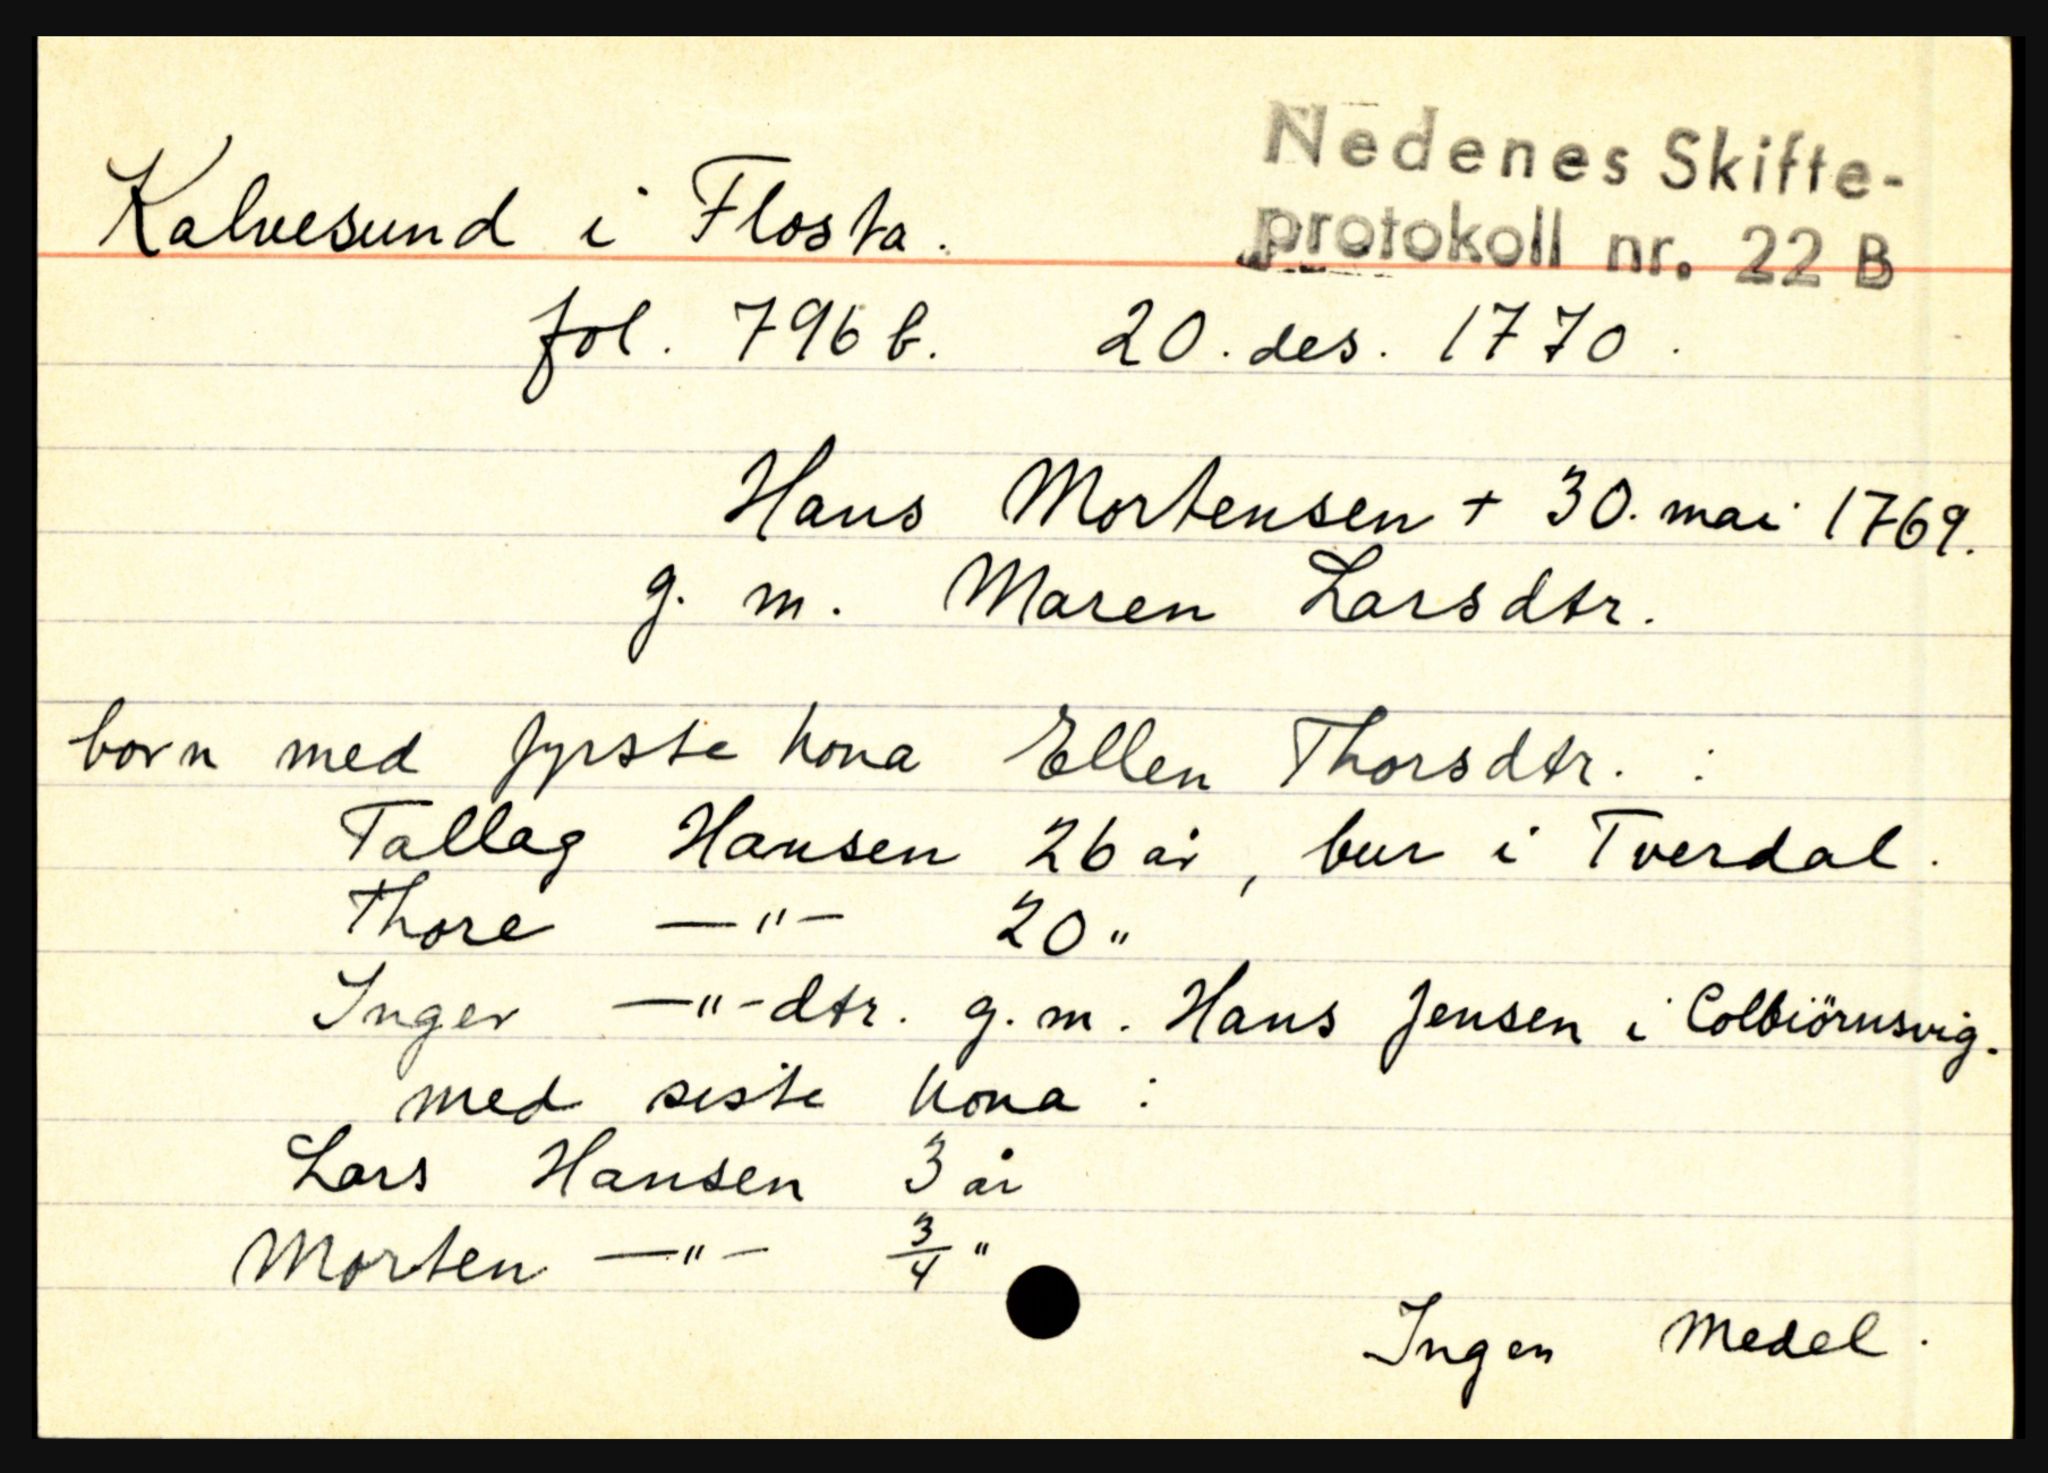 Nedenes Skifte-
protokoll nr. 22 B
Kalvesund i Flosta.
fol. 796 b. 20. des. 1770.
Hans Mortensen + 30. mai 1769.
g. m. Maren Larsdtr.
born med fyrste kona Ellen Thorsdtr. :
Tallag Hansen 26 år, bur i Tverdal.
Thore —"— 20 "
Inger —"—dtr. g. m. Hans Jensen i Colbiörnsvig.
med siste kona :
Lars Hansen 3 år
Morten —"— 3/4 "
Ingen medel.